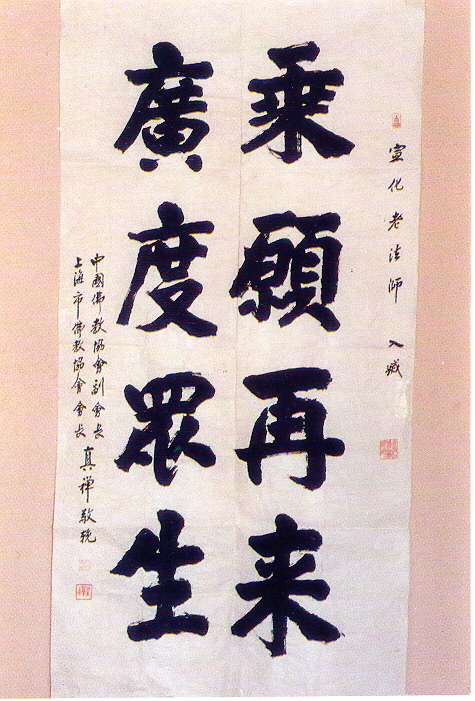 宣化老法師 入藏
乘願再来
廣度眾生
中國佛教協會副會長
上海市佛教協會會長
真禪敬輓